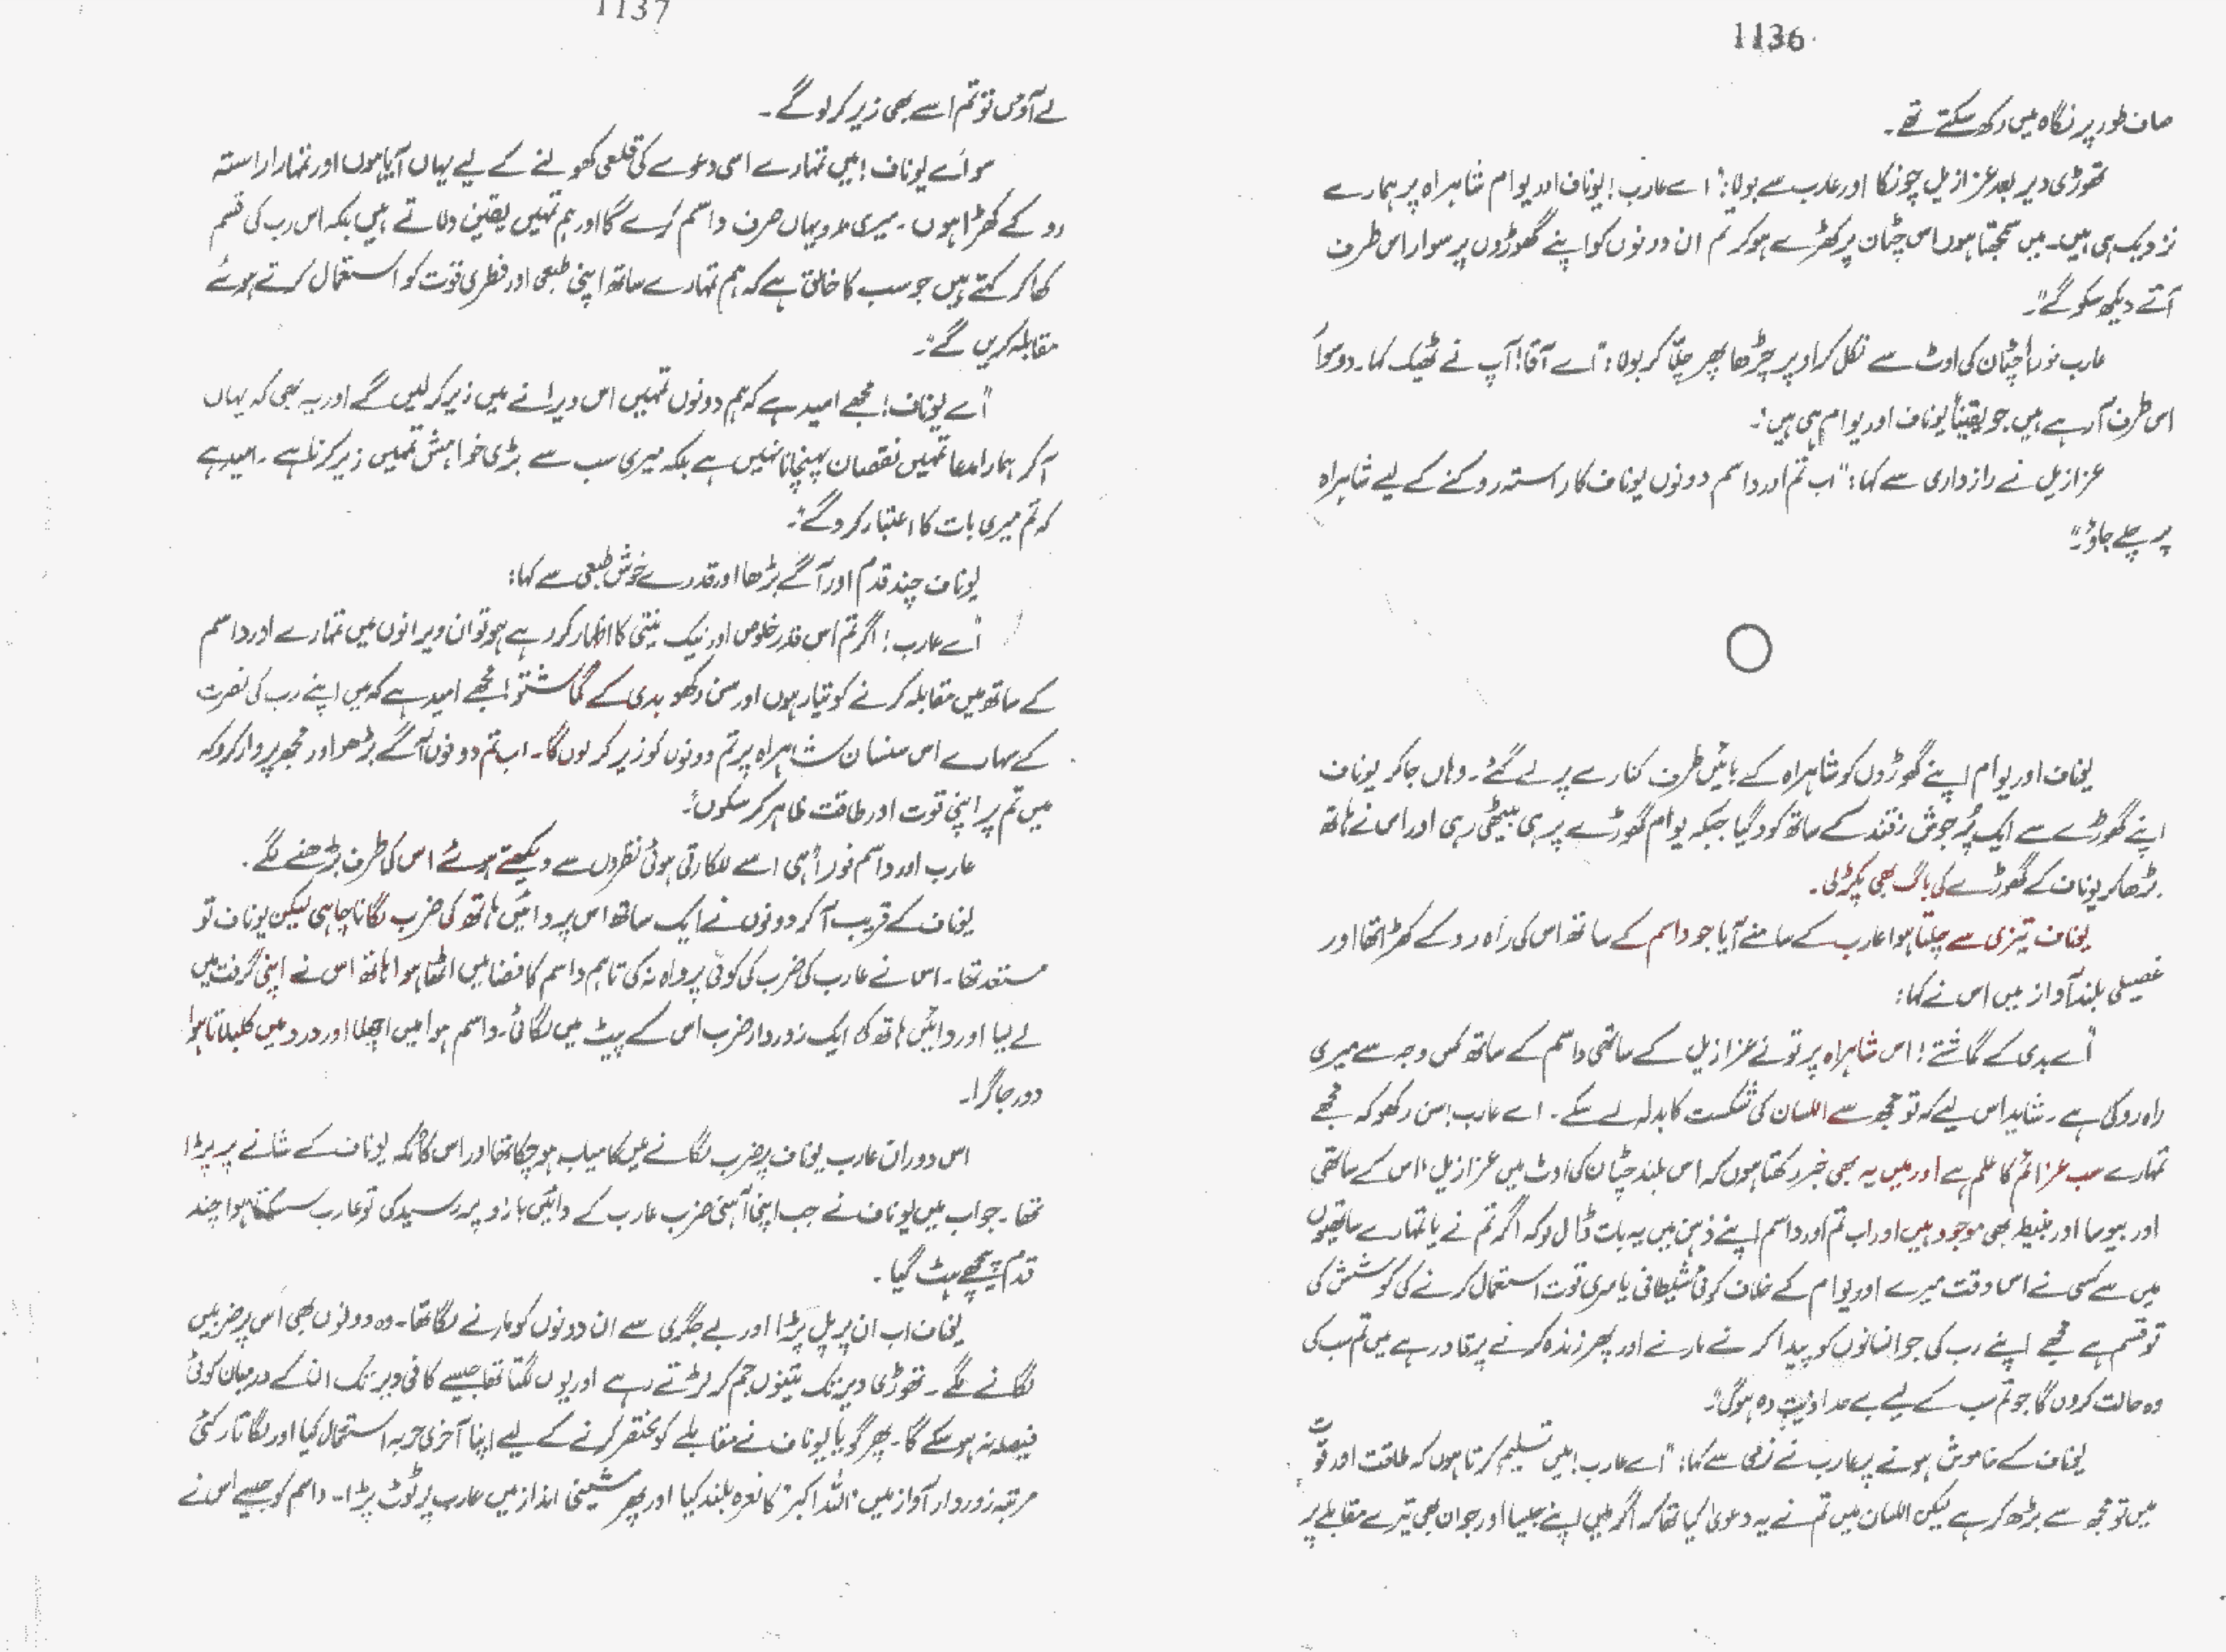 1136
صاف طور پر نگاہ میں رکھ سکتے تھے۔
تھوڑی دیر بعد عزازیل چونکا اور عارب سے بولا: "اے عارب! یوناف اور یوام شاہراہ پر ہمارے
نزدیک ہی ہیں۔ میں سمجھتا ہوں اس چٹان پر کھڑے ہو کر تم ان دونوں کو اپنے گھوڑوں پر سوار اس طرف
آتے دیکھ سکو گے"۔
عارب فوراً چٹان کی اوٹ سے نکل کر اوپر چڑھا پھر چلّا کر بولا: "اے آقا! آپ نے ٹھیک کہا۔ دو سوار
اس طرف آ رہے ہیں جو یقیناً یوناف اور یوام ہی ہیں"۔
عزازیل نے رازداری سے کہا: "اب تم اور داسم دونوں یوناف کا راستہ روکنے کے لیے شاہراہ
پر چلے جاؤ"۔
یوناف اور یوام اپنے گھوڑوں کو شاہراہ کے بائیں طرف کنارے پر لے گئے۔ وہاں جا کر یوناف
اپنے گھوڑے سے ایک پُرجوش زقند کے ساتھ کود گیا جبکہ یوام گھوڑے پر ہی بیٹھی رہی اور اس نے ہاتھ
بڑھا کر یوناف کے گھوڑے کی باگ بھی پکڑ لی۔
یوناف تیزی سے چلتا ہوا عارب کے سامنے آیا جو داسم کے ساتھ اس کی راہ روکے کھڑا تھا اور
غصیلی بلند آواز میں اس نے کہا:
"اے بدی کے گماشتے! اس شاہراہ پر تو نے عزازیل کے ساتھی داسم کے ساتھ کس وجہ سے میری
راہ روکی ہے۔ شاید اس لیے کہ تو مجھ سے اللسان کی شکست کا بدلہ لے سکے۔ اے عارب! سن رکھو کہ مجھے
تمہارے سب عزائم کا علم ہے اور میں یہ بھی خبر رکھتا ہوں کہ اس بلند چٹان کی اوٹ میں عزازیل، اس کے ساتھی
اور بیوسا اور نبیطہ بھی موجود ہیں اور اب تم اور داسم اپنے ذہن میں یہ بات ڈال لو کہ اگر تم نے یا تمہارے ساتھیوں
میں سے کسی نے اس وقت میرے اور یوام کے خلاف کوئی شیطانی یا سری قوت استعمال کرنے کی کوشش کی
تو قسم ہے مجھے اپنے رب کی جو انسانوں کو پیدا کرنے مارنے اور پھر زندہ کرنے پر قادر ہے میں تم سب کی
وہ حالت کروں گا جو تم سب کے لیے بے حد اذیت دہ ہو گی"۔
یوناف کے خاموش ہونے پر عارب نے نرمی سے کہا: "اے عارب! میں تسلیم کرتا ہوں کہ طاقت اور قوت
میں تو مجھ سے بڑھ کر ہے لیکن اللسان میں تم نے یہ دعویٰ کیا تھا کہ اگر میں اپنے جیسا اور جوان بھی تیرے مقابلے پر
1137
لے آؤں تو تم اسے بھی زیر کر لو گے۔
سو اے یوناف! میں تمہارے اسی دعوے کی قلعی کھولنے کے لیے یہاں آیا ہوں اور تمہارا راستہ
روکے کھڑا ہوں۔ میری مدد یہاں صرف داسم کرے گا اور ہم تمہیں یقین دلاتے ہیں بلکہ اس رب کی قسم
کھا کر کہتے ہیں جو سب کا خالق ہے کہ ہم تمہارے ساتھ اپنی طبعی اور فطری قوت کو استعمال کرتے ہوئے
مقابلہ کریں گے"۔
"اے یوناف! مجھے امید ہے کہ ہم دونوں تمہیں اس ویرانے میں زیر کر لیں گے اور یہ بھی کہ یہاں
آ کر ہمارا مدعا تمہیں نقصان پہنچانا نہیں ہے بلکہ میری سب سے بڑی خواہش تمہیں زیر کرنا ہے۔ امید ہے
کہ تم میری بات کا اعتبار کرو گے"۔
یوناف چند قدم اور آگے بڑھا اور قدرے خوش طبعی سے کہا:
"اے عارب! اگر تم اس قدر خلوص اور نیک نیتی کا اظہار کر رہے ہو تو ان ویرانوں میں تمہارے اور داسم
کے ساتھ میں مقابلہ کرنے کو تیار ہوں اور سن رکھو بدی کے گماشتو! مجھے امید ہے کہ میں اپنے رب کی نصرت
کے سہارے اس سنسان شاہراہ پر تم دونوں کو زیر کر لوں گا۔ اب تم دونوں آگے بڑھو اور مجھ پر وار کرو کہ
میں تم پر اپنی قوت اور طاقت ظاہر کر سکوں"۔
عارب اور داسم فوراً ہی اسے للکارتی ہوئی نظروں سے دیکھتے ہوئے اس کی طرف بڑھنے لگے۔
یوناف کے قریب آ کر دونوں نے ایک ساتھ اس پر دائیں ہاتھ کی ضرب لگانا چاہی لیکن یوناف تو
مستعد تھا۔ اس نے عارب کی ضرب کی کوئی پرواہ نہ کی تاہم داسم کا فضا میں اٹھا ہوا ہاتھ اس نے اپنی گرفت میں
لے لیا اور دائیں ہاتھ کی ایک زوردار ضرب اس کے پیٹ میں لگائی۔ داسم ہوا میں اچھلا اور درد میں کلبلاتا ہوا
دور جا گرا۔
اس دوران عارب یوناف پر ضرب لگانے میں کامیاب ہو چکا تھا اور اس کا مُکہ یوناف کے شانے پر پڑا
تھا۔ جواب میں یوناف نے جب اپنی آہنی ضرب عارب کے دائیں بازو پر رسید کی تو عارب سسکتا ہوا چند
قدم پیچھے ہٹ گیا۔
یوناف اب ان پر پل پڑا اور بے جگری سے ان دونوں کو مارنے لگا تھا۔ وہ دونوں بھی اس پر ضربیں
لگانے لگے۔ تھوڑی دیر تک تینوں جم کر لڑتے رہے اور یوں لگتا تھا جیسے کافی دیر تک ان کے درمیان کوئی
فیصلہ نہ ہو سکے گا۔ پھر گویا یوناف نے مقابلے کو مختصر کرنے کے لیے اپنا آخری حربہ استعمال کیا اور لگاتار کئی
مرتبہ زوردار آواز میں "اللہ اکبر" کا نعرہ بلند کیا اور پھر مشینی انداز میں عارب پر ٹوٹ پڑا۔ داسم کو جیسے اس نے